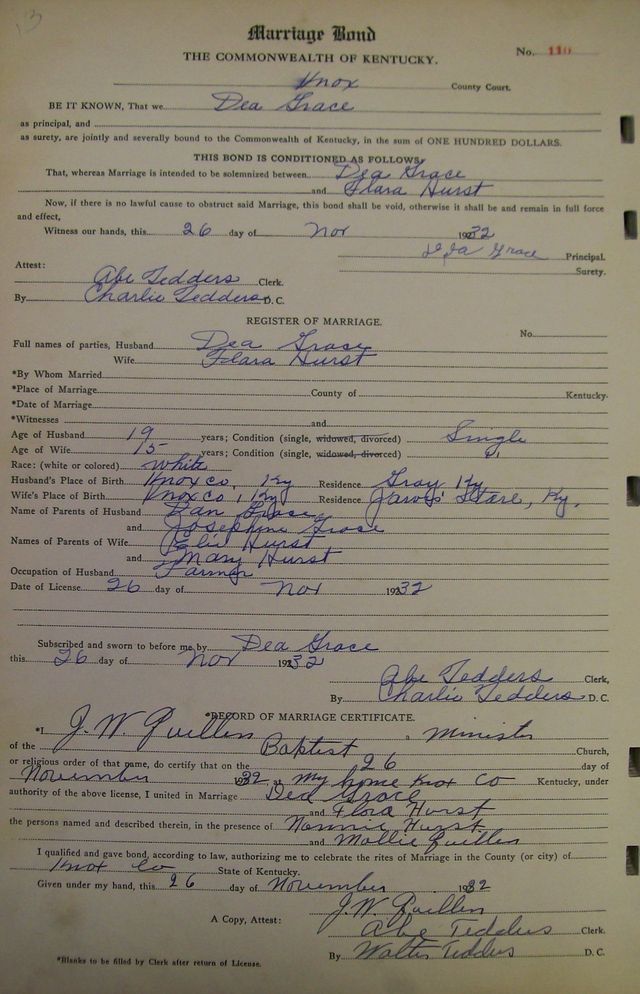 13
Marriage Bond
THE COMMONWEALTH OF KENTUCKY.
No. 110
Knox County Court.
BE IT KNOWN, That we Dea Grace
as principal, and
as surety, are jointly and severally bound to the Commonwealth of Kentucky, in the sum of ONE HUNDRED DOLLARS.
THIS BOND IS CONDITIONED AS FOLLOWS:
That, whereas Marriage is intended to be solemnized between Dea Grace
and Flara Hurst
Now, if there is no lawful cause to obstruct said Marriage, this bond shall be void, otherwise it shall be and remain in full force
and effect,
Witness our hands, this 26 day of Nov 1932
Grace Principal.
Surety.
Attest:
Abe Tedders Clerk.
By Charlie Tedders D. C.
REGISTER OF MARRIAGE.
No.
Full names of parties, Husband Dea Grace
Wife Flara Hurst
*By Whom Married
*Place of Marriage County of Kentucky.
*Date of Marriage
*Witnesses and
Age of Husband 19 years; Condition (single, widowed, divorced) Single
Age of Wife 15 years; Condition (single, widowed, divorced) "
Race: (white or colored) White
Husband's Place of Birth Knox co, Ky Residence Gray Ky
Wife's Place of Birth Knox co, Ky Residence Jarvis Store, Ky.
Name of Parents of Husband Dan Grace
and Josephine Grace
Names of Parents of Wife Hurst
and Mary Hurst
Occupation of Husband Farmer
Date of License 26 day of Nov 1932
Subscribed and sworn to before me by Dea Grace
this 26 day of Nov 1932
Abe Tedders Clerk,
By Charlie Tedders D. C.
*RECORD OF MARRIAGE CERTIFICATE.
*I J. W. Quillen a Minister
of the Baptist Church,
or religious order of that name, do certify that on the 26 day of
November 1932 at my home Knox Co Kentucky, under
authority of the above license, I united in Marriage Dea Grace
and Flora Hurst
the persons named and described therein, in the presence of Nannie Hurst
and Mollie Quillen
I qualified and gave bond, according to law, authorizing me to celebrate the rites of Marriage in the County (or city) of
Knox Co State of Kentucky.
Given under my hand, this 26 day of November 1932
J. W. Quillen
A Copy, Attest: Abe Tedders Clerk.
By Walter Tedders D. C.
*Blanks to be filled by Clerk after return of License.